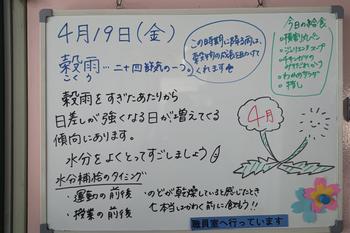 4月19日(金)
穀雨…二十四節気の一つ。
こくう
この時期に降る雨は、
穀物の成長を助けて
くれます
今日の給食
穀雨をすぎたあたりから
日差しが強くなる日が増えてくる
傾向にあります。
水分をよくとってすごしましょう
水分補給のタイミング
・運動の前後
・授業の前後
・のどが乾燥していると感じたとき
本当はかわく前に飲もう!!
4月
職員室へ行っています